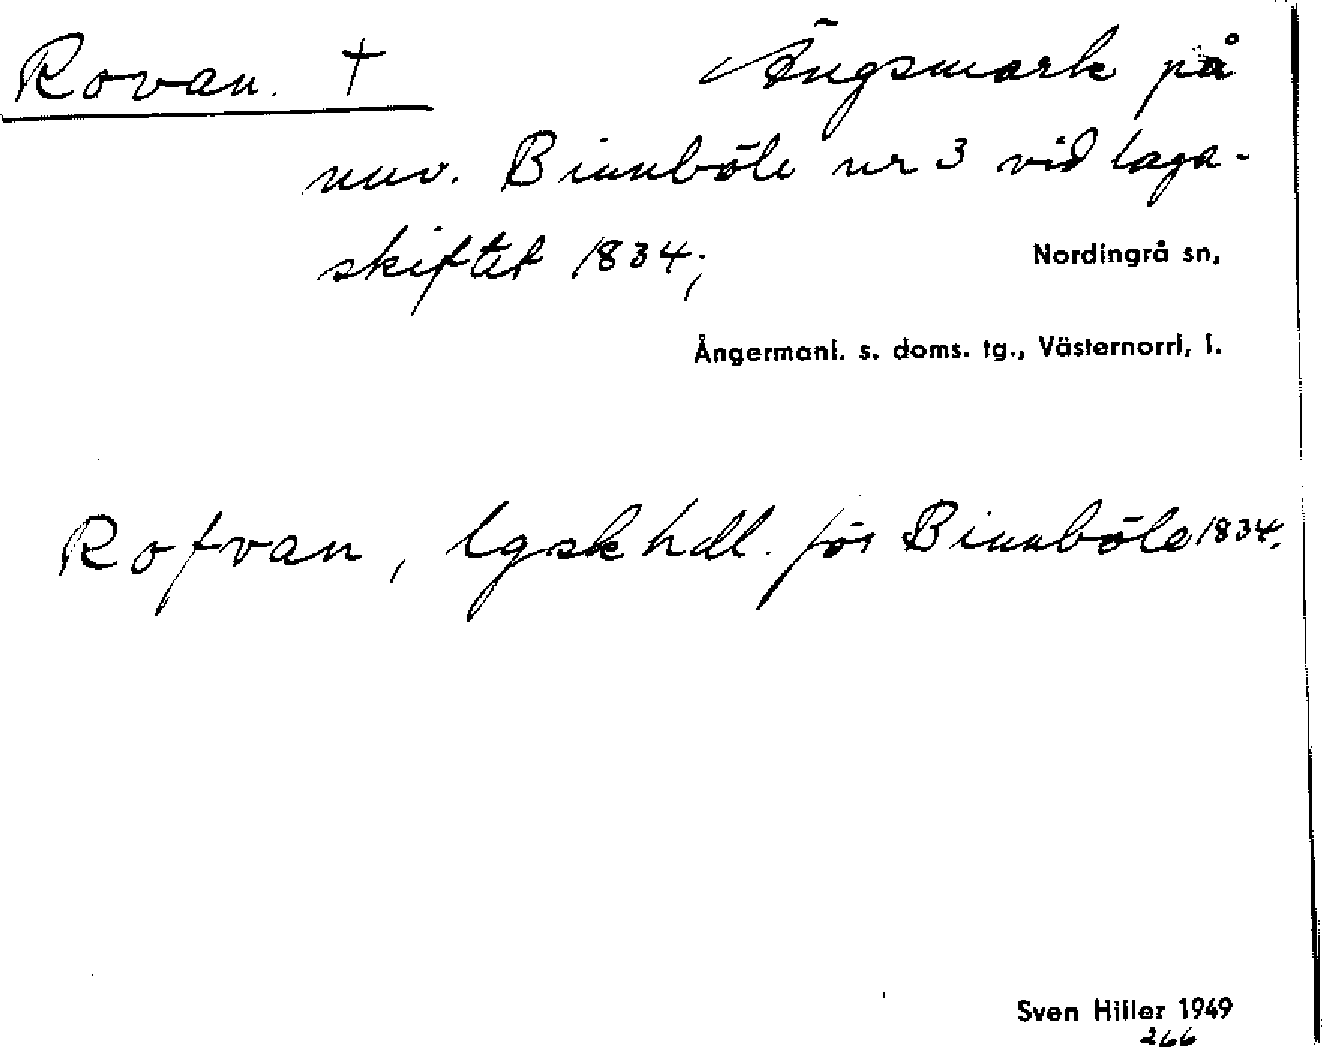 Rovan. † Ängsmark på
nuv. Binnböle nr 3 vid laga-
skiftet 1834;
Nordingrå sn,
Ångermanl. s. doms. tg., Västernorrl, l.
Rofvan, lgskhdl. för Binnböle 1834.
Sven Hiller 1949
266